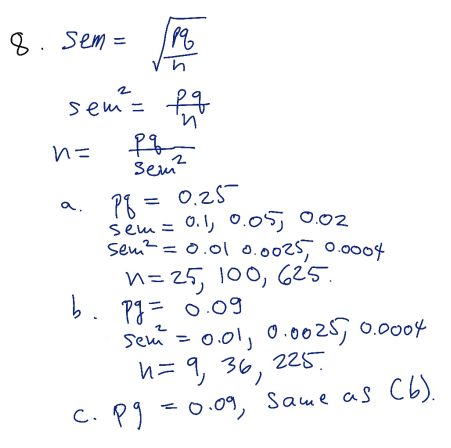 8. sem = √(pq/n)
sem² = pq/n
n = pq/sem²
a. pq = 0.25
sem = 0.1, 0.05, 0.02
sem² = 0.01 0.0025, 0.0004
n = 25, 100, 625.
b. pq = 0.09
sem² = 0.01, 0.0025, 0.0004
n = 9, 36, 225.
c. pq = 0.09, same as (b).